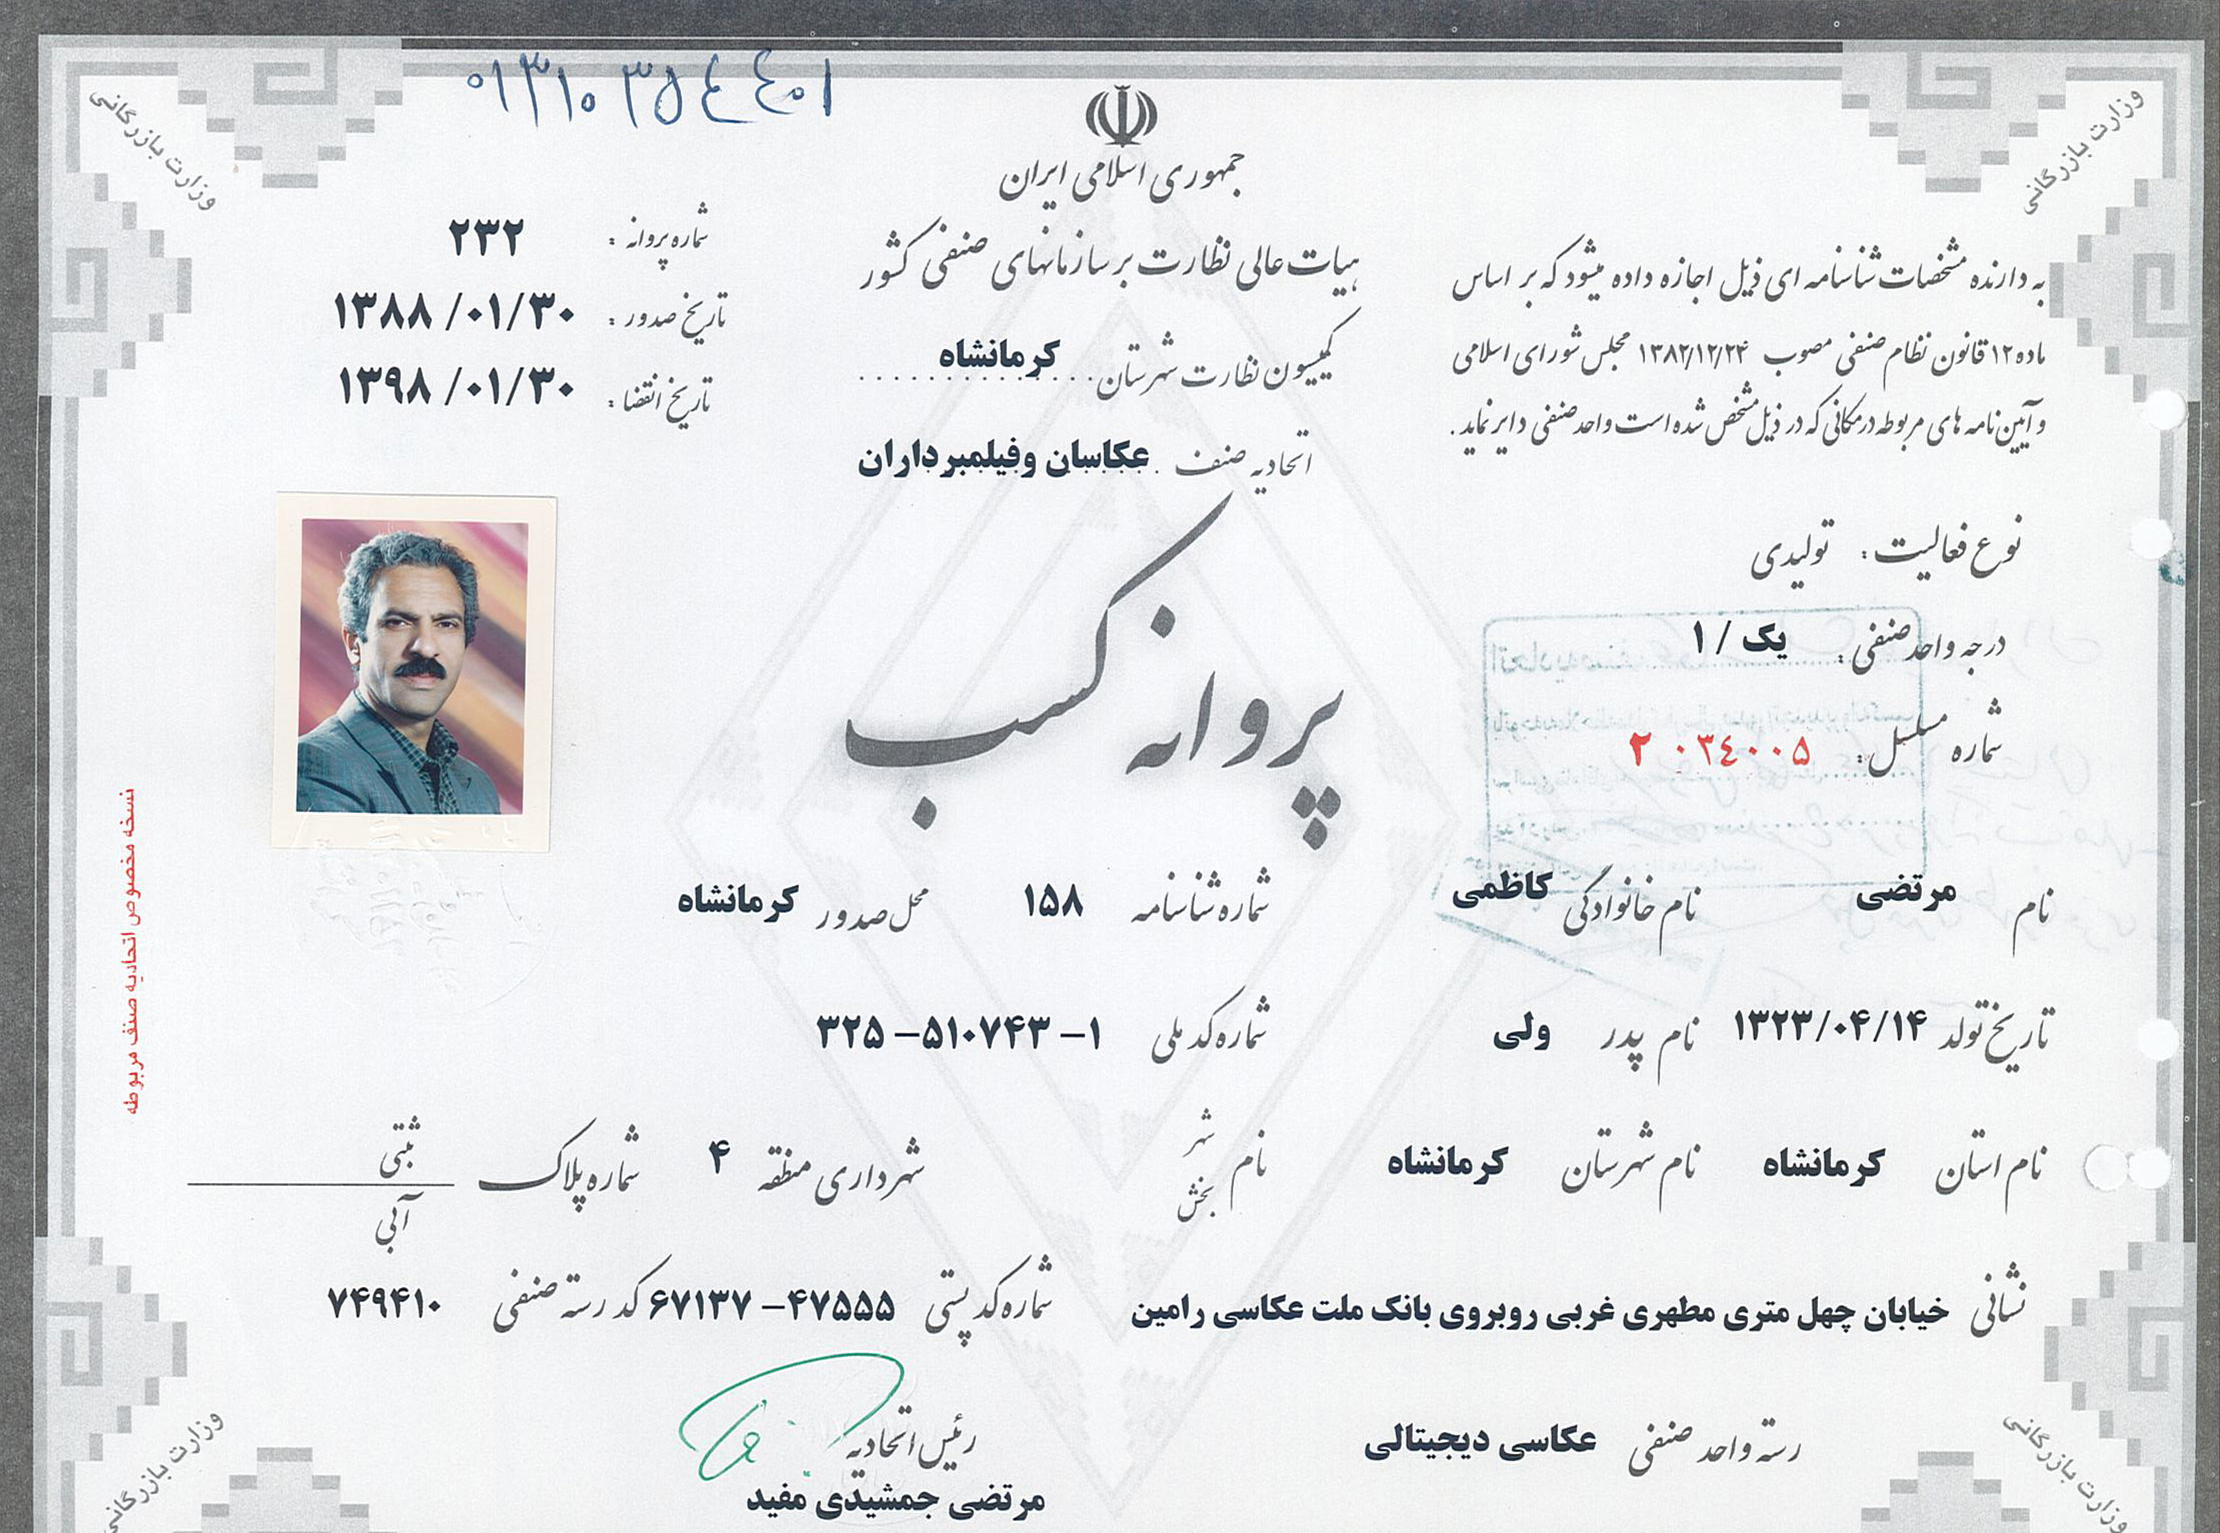 ۰۹۳۱۰۳۵۴۴۰۱
وزارت بازرگانی
وزارت بازرگانی
جمهوری اسلامی ایران
هیات عالی نظارت بر سازمانهای صنفی کشور
کمیسیون نظارت شهرستان کرمانشاه
اتحادیه صنف عکاسان وفیلمبرداران
به دارنده مشخصات شناسنامه ای ذیل اجازه داده میشود که بر اساس
ماده ۱۲ قانون نظام صنفی مصوب ۱۳۸۲/۱۲/۲۴ مجلس شورای اسلامی
و آیین نامه های مربوطه درمکانی که در ذیل مشخص شده است واحد صنفی دایر نماید.
شماره پروانه : ۲۳۲
تاریخ صدور : ۱۳۸۸/۰۱/۳۰
تاریخ انقضا : ۱۳۹۸/۰۱/۳۰
نوع فعالیت : تولیدی
درجه واحد صنفی : یک / ۱
شماره مسلسل : ۲۰۳۴۰۰۵
پروانه کسب
نام مرتضی نام خانوادگی کاظمی شماره شناسنامه ۱۵۸ محل صدور کرمانشاه
تاریخ تولد ۱۳۲۳/۰۴/۱۴ نام پدر ولی شماره کد ملی ۱- ۵۱۰۷۴۳- ۳۲۵
نام استان کرمانشاه نام شهرستان کرمانشاه نام شهر بخش شهرداری منطقه ۴ شماره پلاک ثبتی آبی
نشانی خیابان چهل متری مطهری غربی روبروی بانک ملت عکاسی رامین شماره کد پستی ۴۷۵۵۵- ۶۷۱۳۷ کد رسته صنفی ۷۴۹۴۱۰
رسته واحد صنفی عکاسی دیجیتالی
رئیس اتحادیه
مرتضی جمشیدی مفید
نسخه مخصوص اتحادیه صنف مربوطه
وزارت بازرگانی
وزارت بازرگانی